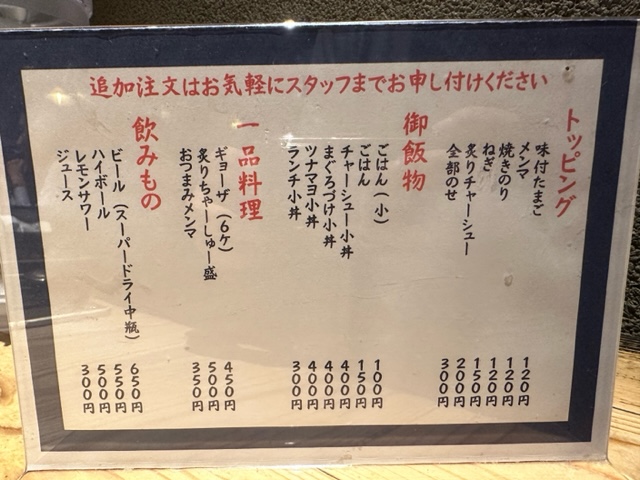 追加注文はお気軽にスタッフまでお申し付けください
トッピング
味付たまご 120円
メンマ 120円
焼きのり 120円
ねぎ 150円
炙りチャーシュー 200円
全部のせ 300円
御飯物
ごはん（小） 100円
ごはん 150円
チャーシュー小丼 400円
まぐろづけ小丼 400円
ツナマヨ小丼 400円
ランチ小丼 300円
一品料理
ギョーザ（6ケ） 450円
炙りちゃーしゅー盛 500円
おつまみメンマ 350円
飲みもの
ビール（スーパードライ中瓶） 650円
ハイボール 550円
レモンサワー 500円
ジュース 300円